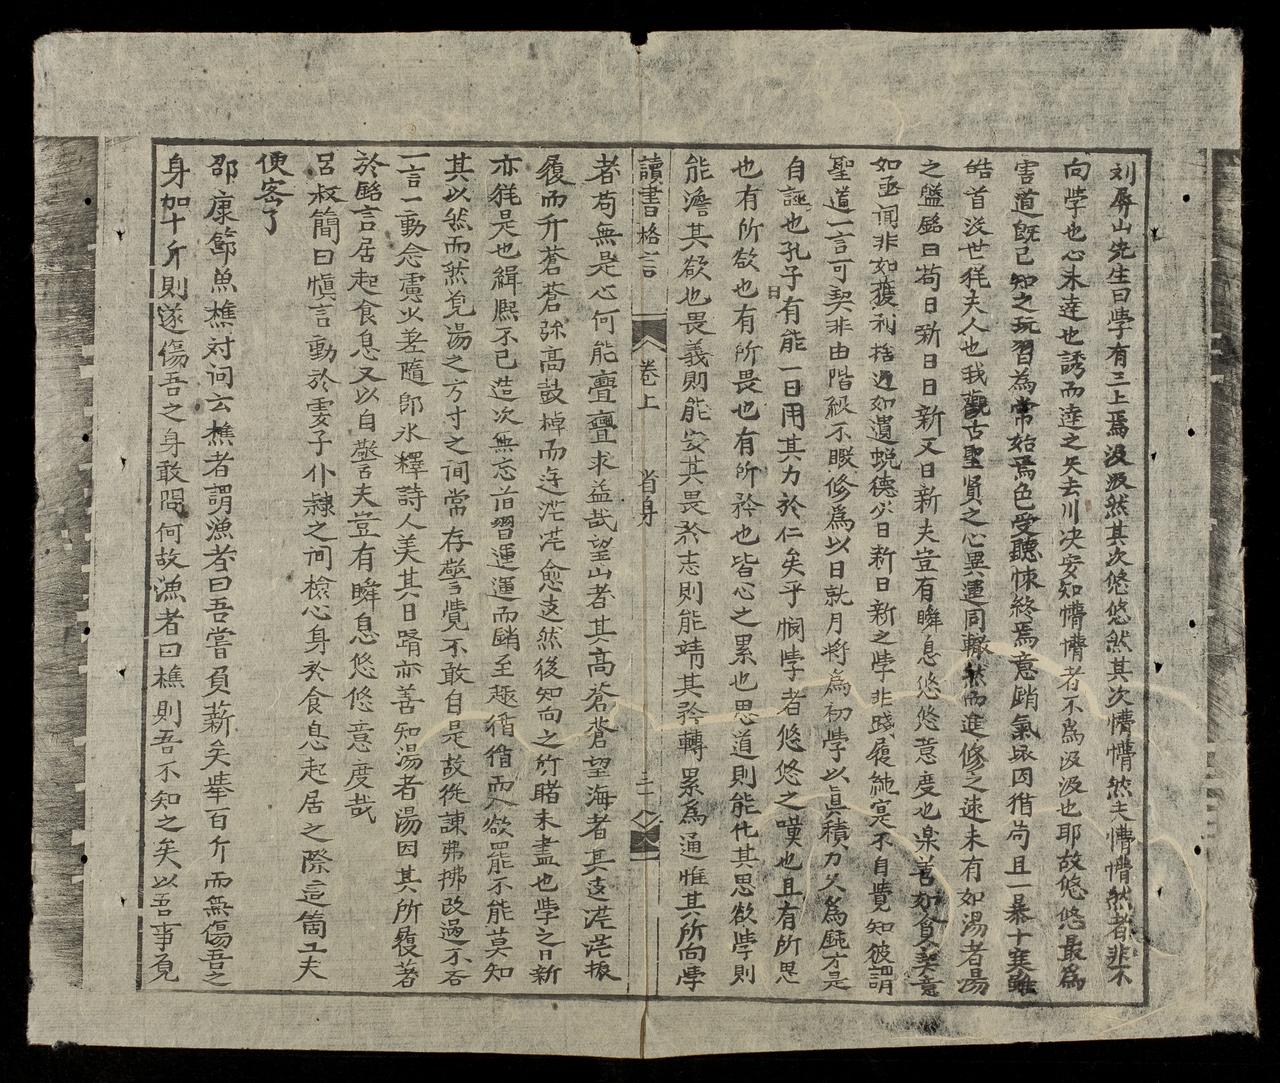 刘屏山先生曰斈有三上焉汲汲然其次悠悠然其次懵懵然夫懵懵然者非不
向斈也心未達也誘而達之矢去川决安知懵懵者不爲汲汲也耶故悠悠最爲
害道旣已知之玩習為常始焉色受聽悚終焉意銷氣泯因循苟且一暴十寒雖
皓首没世犹夫人也我觀古聖賢之心異運同轍然而進修之速未有如湯者湯
之盤銘曰苟日新日日新又日新夫豈有瞬息悠悠意度也樂善如貪契意
如函闻非如獲利捨过如遺蛻德公日新日新之斈非踐履純寔不自覺知彼謂
聖道一言可契非由階級不暇修爲以日就月将為初斈以眞積力久爲鈍才是
自誣也孔子曰有能一日用其力於仁矣乎悯斈者悠悠之嘆也且有所思
也有所欲也有所畏也有所矜也皆心之累也思道則能化其思欲斈則
能澹其欲也畏義則能安其畏矜志則能靖其矜轉累爲通惟其所向斈
讀書格言 卷上 省身 二
者苟無是心何能亹亹求益哉望山者其高蒼蒼望海者其遠茫茫扳
履而升蒼蒼弥高鼓棹而进茫茫愈遠然後知向之所睹未盡也斈之日新
亦犹是也緝熙不已造次無忘旧習運運而銷至趣循循而入欲罷不能莫知
其以然而然覓湯之方寸之间常存警覺不敢自是故從諫弗拂改過不吝
一言一動念慮少差隨即氷釋詩人美其日躋亦善知湯者湯因其所履著
於銘言居起食息又以自警夫豈有瞬息悠悠意度哉
呂叔簡曰愼言動於妻子仆隷之间檢心身於食息起居之際這箇工夫
便密了
邵康節魚樵対问云樵者謂漁者曰吾嘗負薪矣举百斤而無傷吾之
身加十斤則遂傷吾之身敢問何故漁者曰樵則吾不知之矣以吾事覓